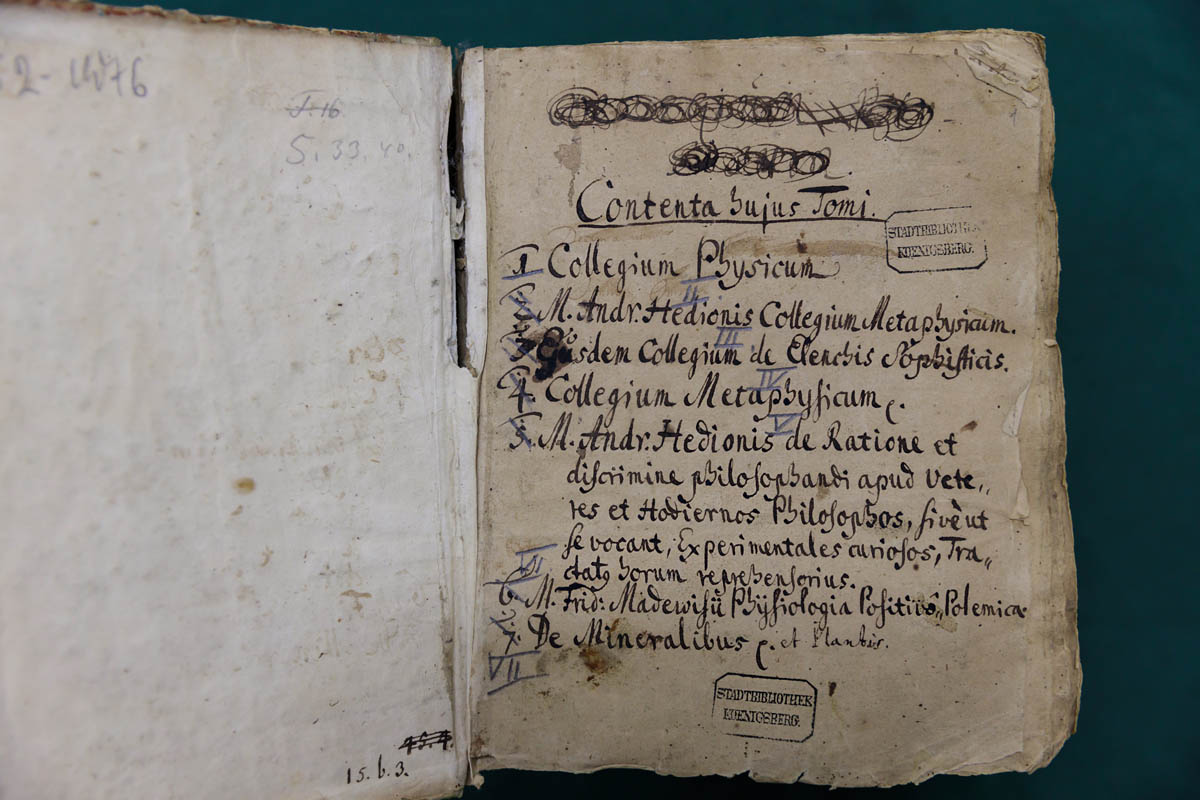 52-1476
J. 16
S. 33. 40.
15. b. 3.
Contenta hujus Tomi.
STADTBIBLIOTHEK
KOENIGSBERG.
1 Collegium Physicum
II
2. M. Andr. Hedionis Collegium Metaphysicum.
III
3. Ejusdem Collegium de Elenchis Sophisticis.
IV
4. Collegium Metaphysicum
V
5. M. Andr. Hedionis de Ratione et
discrimine philosophandi apud Vete„
res et Hodiernos Philosophos, sive ut
se vocant, Experimentales curiosos, Tra„
ctatq horum reprehensorius.
VI
6. M. Frid: Madewisii Physiologia Positivô„Polemica
7. De Mineralibus et Plantis.
VII
STADTBIBLIOTHEK
KOENIGSBERG.